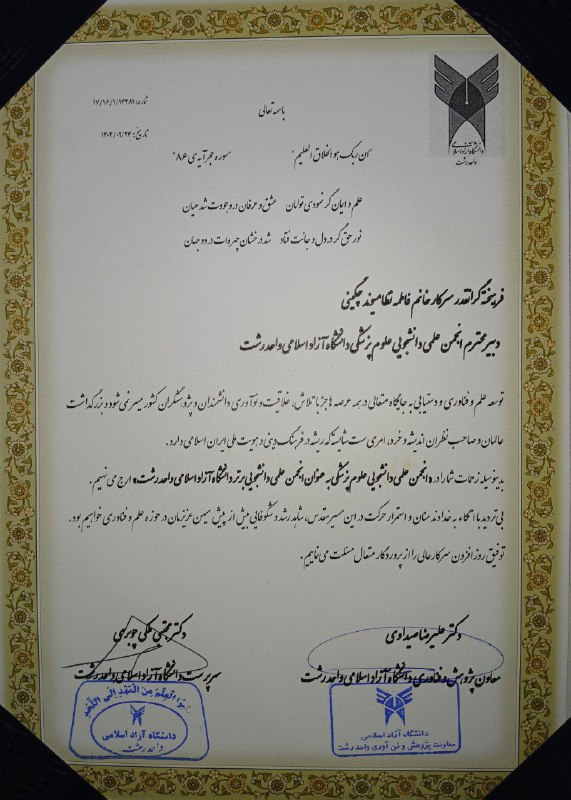 باسمه تعالی
شماره: ۱۷/۱۶/۱/۱۳۳۸۱
تاریخ: ۱۴۰۲/۰۹/۲۴
دانشگاه آزاد اسلامی
واحد رشت
"ان ربک هو الخلاق العلیم" "سوره حجر آیه‌ی ۸۶"
علم و ایمان گر نمودی توامان عشق و عرفان در وجودت شد عیان
نور حق گر در دل و جانت فتاد شد درخشان چهره‌ات در دو جهان
فریخته گرانقدر سرکار خانم فاطمه نظامیوند چگینی
دبیر محترم انجمن علمی دانشجویی علوم پزشکی دانشگاه آزاد اسلامی واحد رشت
توسعه علم و فناوری و دستیابی به جایگاه متعالی در همه عرصه ها جز با تلاش، خلاقیت و نوآوری دانشمندان و پژوهشگران کشور میسر نمی شود و بزرگداشت
عالمان و صاحب نظران اندیشه و خرد، امری ست شایسته که ریشه در فرهنگ دینی و هویت ملی ایران اسلامی دارد.
بدینوسیله زحمات شما را در «انجمن علمی دانشجویی علوم پزشکی به عنوان انجمن علمی دانشجویی برتر دانشگاه آزاد اسلامی واحد رشت» ارج می نهیم.
بی تردید با اتکاء به خداوند منان و استمرار حرکت در این مسیر مقدس، شاهد رشد و شکوفایی بیش از پیش میهن عزیزمان در حوزه علم و فناوری خواهیم بود.
توفیق روز افزون سرکار عالی را از پروردگار متعال مسئلت می نماییم.
دکتر علیرضا صیداوی
معاون پژوهش و فناوری دانشگاه آزاد اسلامی واحد رشت
دکتر مجتبی ملکی چوبری
سرپرست دانشگاه آزاد اسلامی واحد رشت
دانشگاه آزاد اسلامی
معاونت پژوهش و فن آوری واحد رشت
اطلبوا العلم من المهد الی اللحد
دانشگاه آزاد اسلامی
واحد رشت